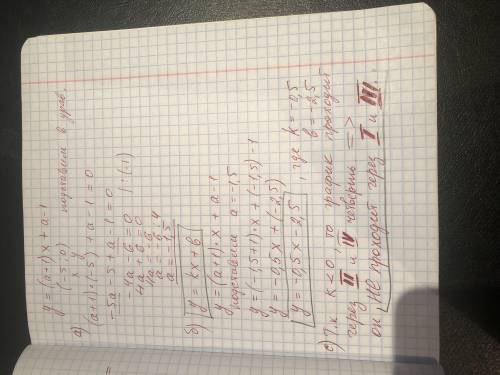 y = (a+1)x + a-1
а) (-5; 0) подставим в урав.
x y
(a+1)·(-5) + a-1 = 0
-5a-5+a-1=0
-4a-6=0 | :(-1)
4a+6=0
4a=-6 :4
a=-1,5
б) y = kx+b
y = (a+1)·x + a-1
подставим a=-1,5
y = (-1,5+1)·x + (-1,5)-1
y = -0,5x + (-2,5)
y = -0,5x-2,5, где k=-0,5
b=-2,5
с) Т.к k<0, то график проходит
через II и IV четверть =>
он НЕ проходит через I и III.